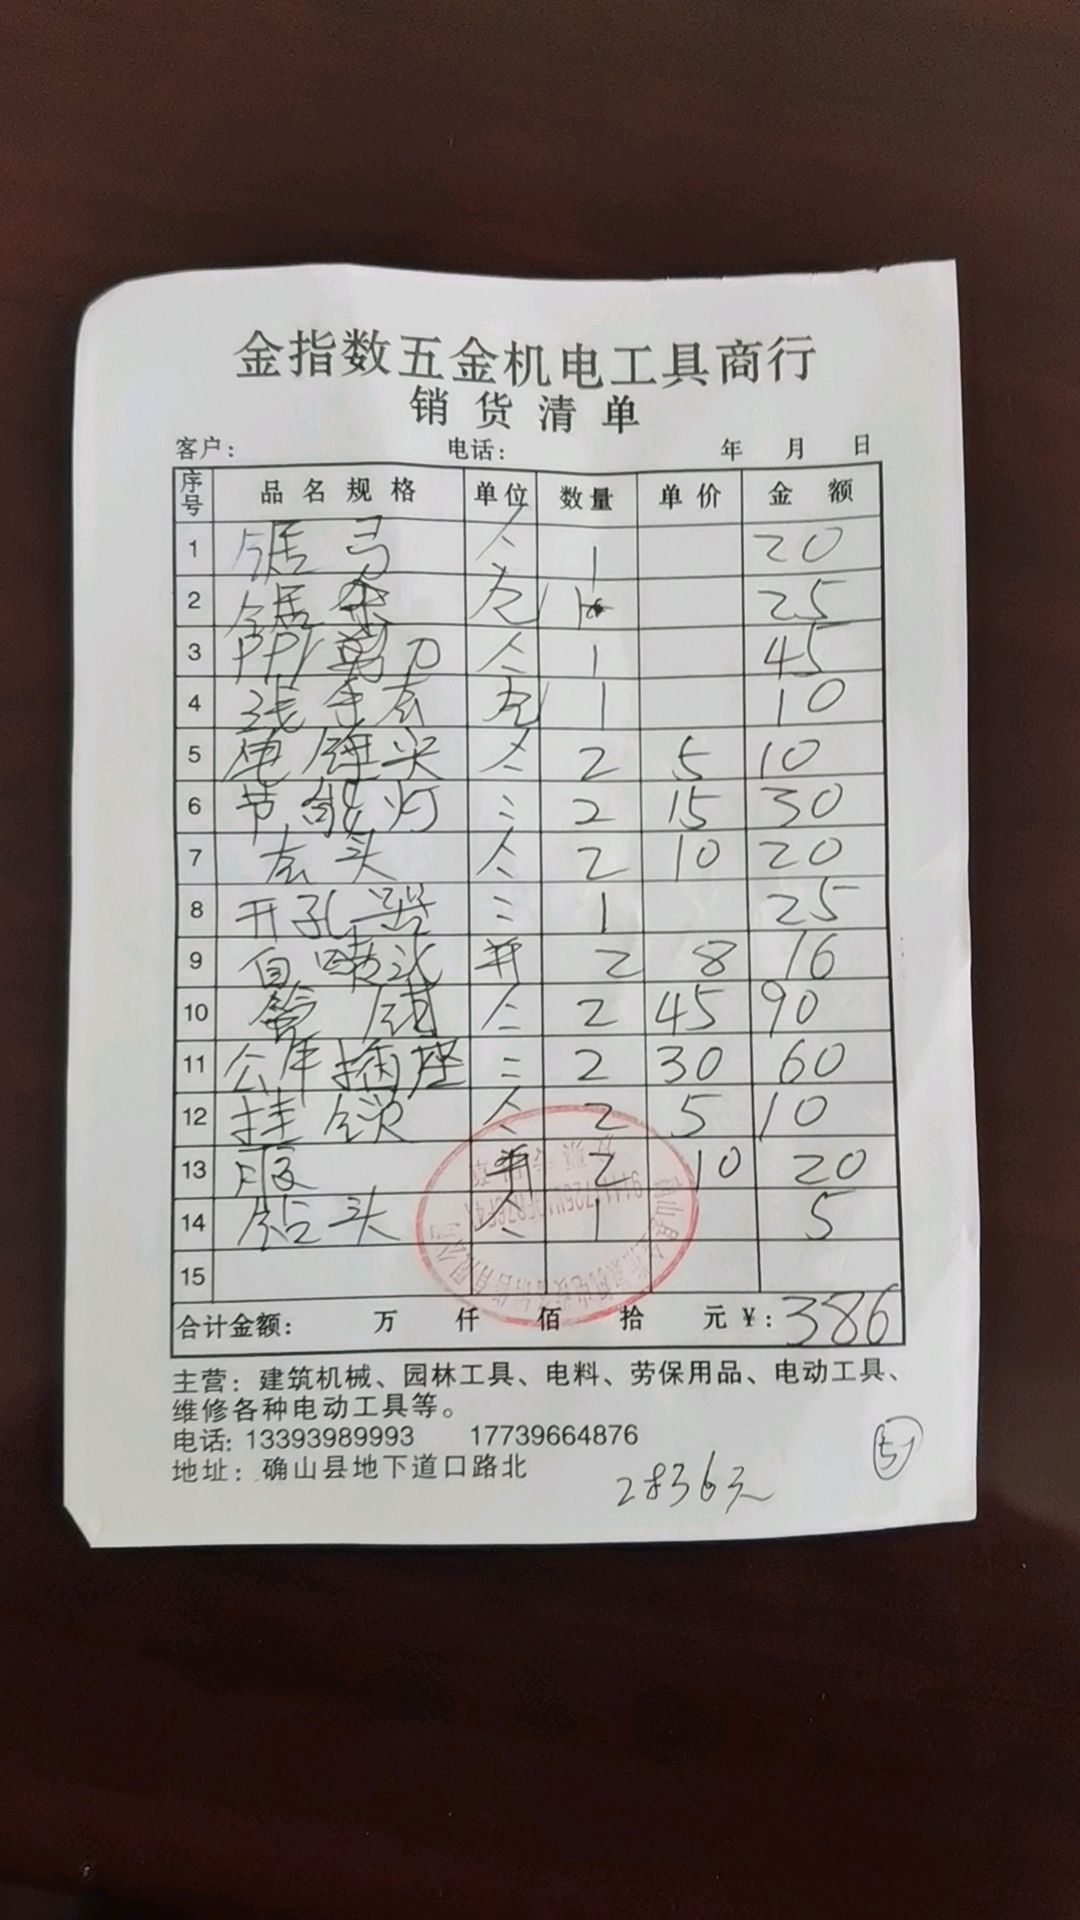 金指数五金机电工具商行
销货清单
客户: 电话: 年 月 日
序号 品名规格 单位 数量 单价 金额
1 锯弓 个 1 20
2 锯条 1 25
3 PPR剪刀 个 1 45
4 线手套 1 10
5 电锤头 个 2 5 10
6 节能灯 = 2 15 30
7 头 个 2 10 20
8 开孔器 = 1 25
9 自喷漆 2 8 16
10 管钳 个 2 45 90
11 公牛插座 = 2 30 60
12 挂锁 个 2 5 10
13 2 10 20
14 钻头 个 1 5
15
合计金额: 万 仟 佰 拾 元 ¥: 386
主营: 建筑机械、园林工具、电料、劳保用品、电动工具、
维修各种电动工具等。
电话: 13393989993 17739664876
地址: 确山县地下道口路北
2836元
51